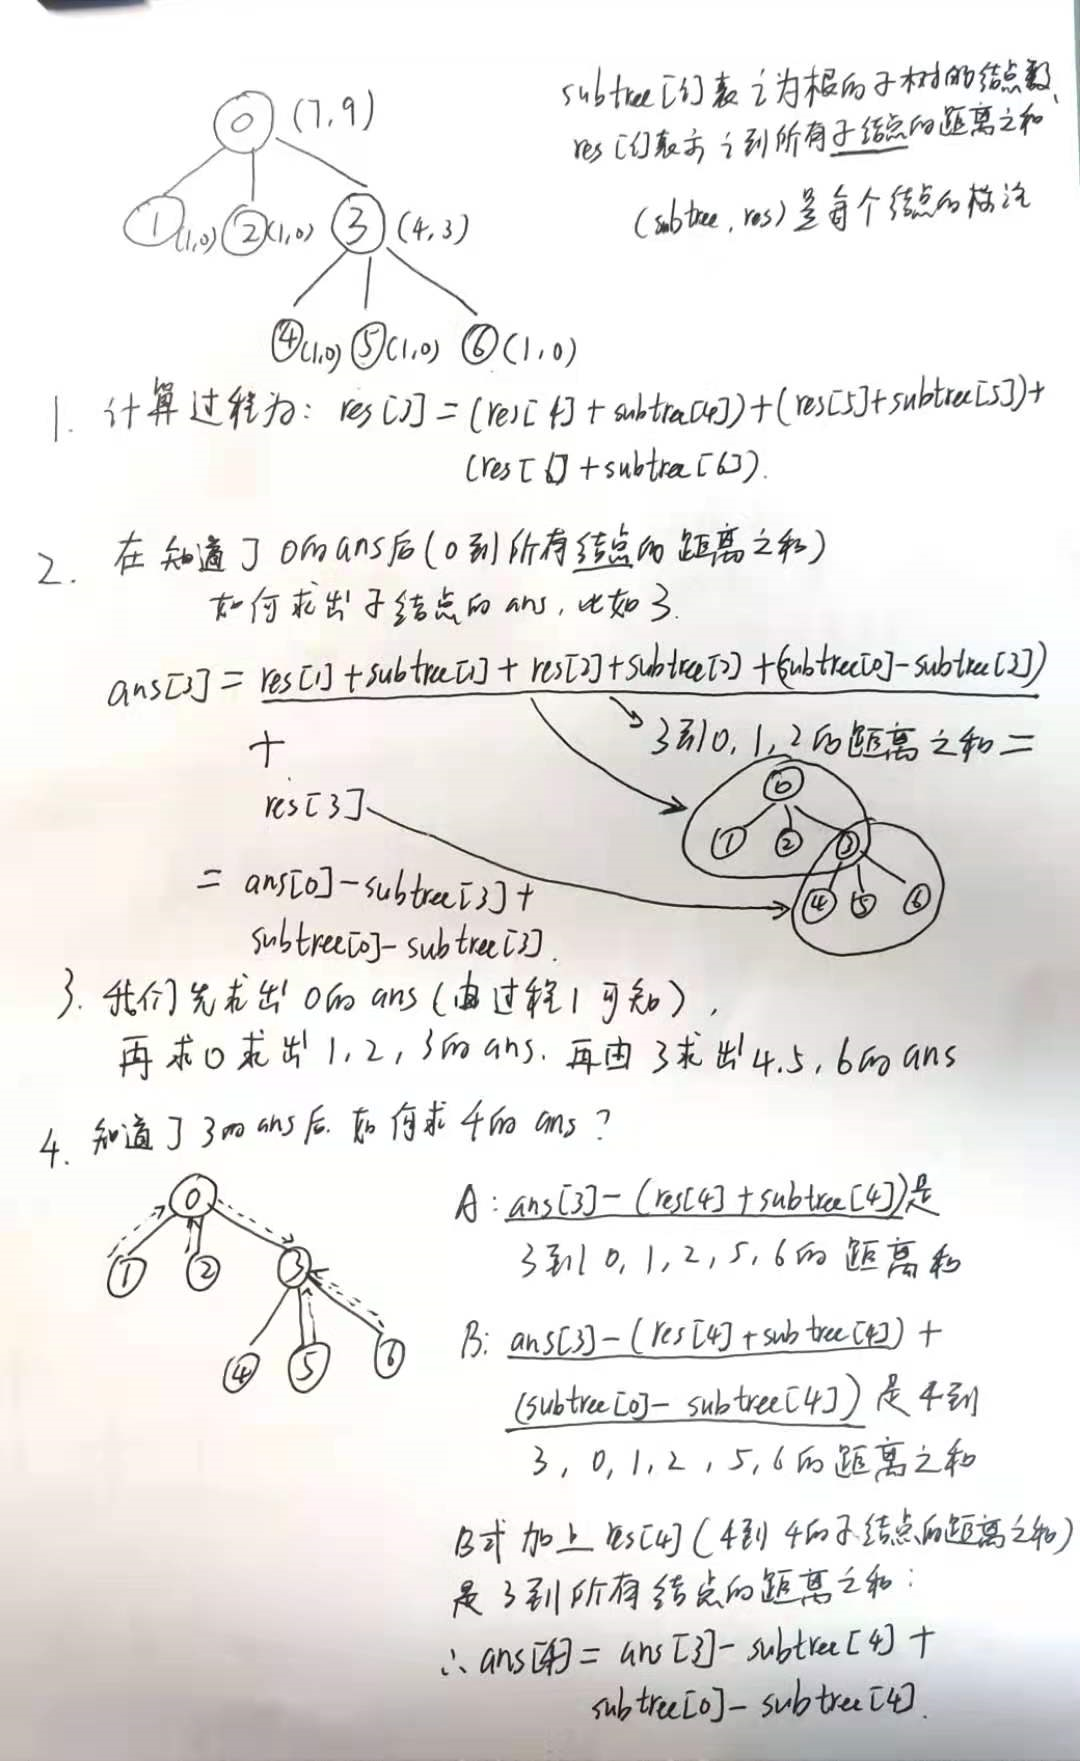 subtree[i]表i为根的子树的结点数、
res[i]表示i到所有子结点的距离之和
(subtree, res)是每个结点的标注
0 (7,9)
1 (1,0) 2 (1,0) 3 (4,3)
4 (1,0) 5 (1,0) 6 (1,0)
1. 计算过程为: res[3] = (res[4] + subtree[4]) + (res[5] + subtree[5]) +
(res[6] + subtree[6]).
2. 在知道了0的ans后(0到所有结点的距离之和)
如何求出子结点的ans, 比如3.
ans[3] = res[1] + subtree[1] + res[2] + subtree[2] + (subtree[0] - subtree[3])
+
3到0, 1, 2的距离之和 =
res[3]
0
1 2 3
4 5 6
= ans[0] - subtree[3] +
subtree[0] - subtree[3].
3. 我们先求出0的ans(由过程1可知),
再求0求出1, 2, 3的ans. 再由3求出4, 5, 6的ans
4. 知道了3的ans后. 如何求4的ans?
0
1 2 3
4 5 6
A: ans[3] - (res[4] + subtree[4])是
3到0, 1, 2, 5, 6的距离和
B: ans[3] - (res[4] + subtree[4]) +
(subtree[0] - subtree[4])是4到
3, 0, 1, 2, 5, 6的距离之和
B式加上res[4](4到4的子结点的距离之和)
是3到所有结点的距离之和:
∴ ans[4] = ans[3] - subtree[4] +
subtree[0] - subtree[4].